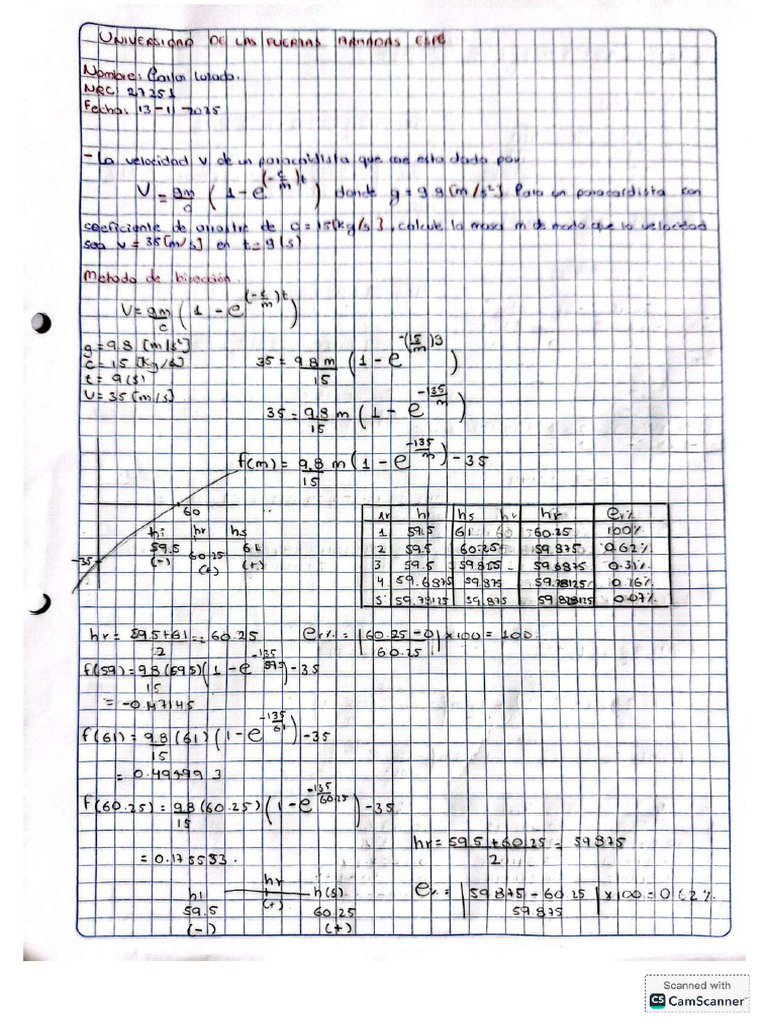 UNIVERSIDAD DE LAS FUERZAS ARMADAS ESPE
Nombre: Carlos
NRC: 27251
Fecha: 13-11-2025
- La velocidad v de un paracaidista que cae esta dada por
V = gm/c (1 - e^(-c/m)t) donde g = 9.8 [m/s²]. Para un paracaidista con
coeficiente de arrastre de c = 15 [kg/s], calcule la masa m de modo que la velocidad
sea v = 35 [m/s] en t = 9 (s)
Metodo de bisección.
V = gm/c (1 - e^(-c/m)t)
g = 9.8 [m/s²]
c = 15 [kg/s]
t = 9 (s)
v = 35 [m/s]
35 = 9.8 m/15 (1 - e^-(15/m)9)
35 = 9.8/15 m (1 - e^-135/m)
f(m) = 9.8/15 m (1 - e^-135/m) - 35
60
-35
hi hr hs
59.5 60.25 61
(-) (+) (+)
hi hs hr er%
1 59.5 61 60.25 100%
2 59.5 60.25 59.875 0.62%
3 59.5 59.875 59.6875 0.31%
4 59.6875 59.875 59.78125 0.16%
5 59.78125 59.875 59.828125 0.07%
hr = 59.5+61/2 = 60.25 er% = |60.25 - 0/60.25| x100 = 100
f(59) = 9.8/15 (59.5) (1 - e^-135/59.5) - 35
= -0.147145
f(61) = 9.8/15 (61) (1 - e^-135/61) - 35
= 0.494993
f(60.25) = 9.8/15 (60.25) (1 - e^-135/60.25) - 35
= 0.175533.
hr = 59.5 + 60.25/2 = 59.875
hi hr h(s)
59.5 (+) 60.25
(-) (+)
er% = |59.875 - 60.25/59.875| x100 = 0.62%
Scanned with
CS CamScanner